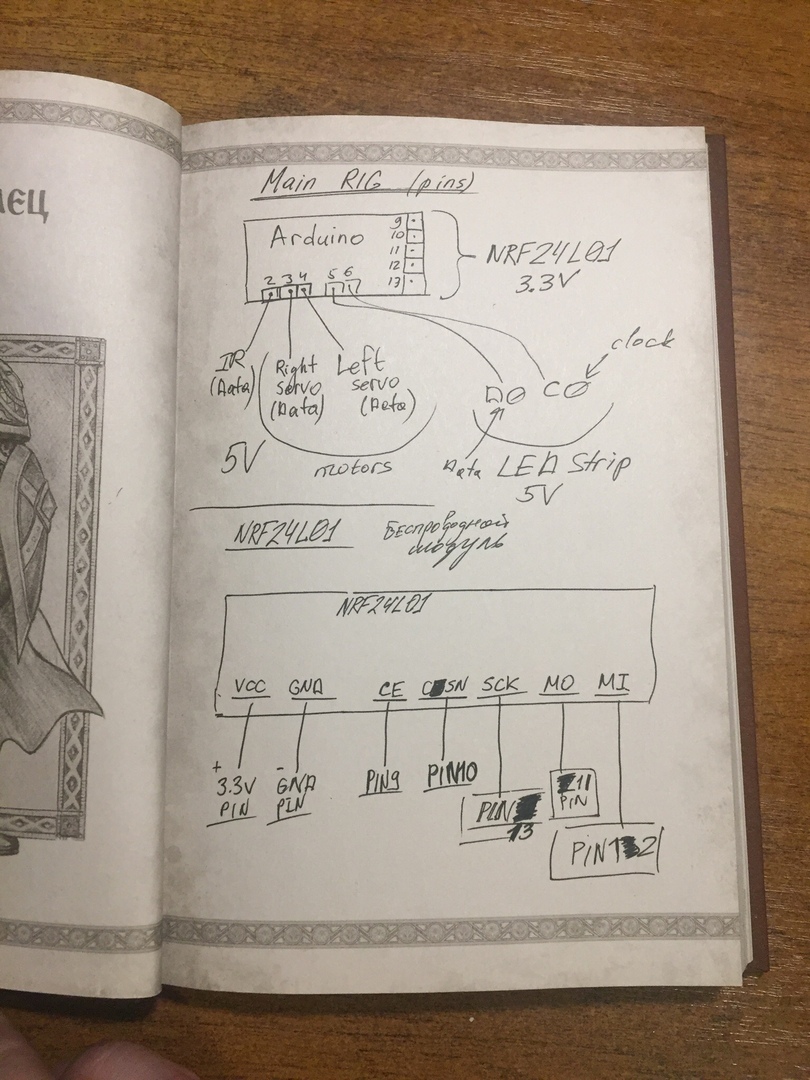 Main RIG (pins)
Arduino
9
10
11
12
13
2 3 4 5 6
NRF24L01
3.3V
IR
(Data)
Right
servo
(Data)
Left
servo
(Data)
clock
DO CO
5V
motors
Data
LED Strip
5V
NRF24L01 Беспроводной
модуль
NRF24L01
VCC GND CE CSN SCK MO MI
+
3.3V
PIN
-
GND
PIN
PIN9
PIN10
PIN
13
11
PIN
PIN12